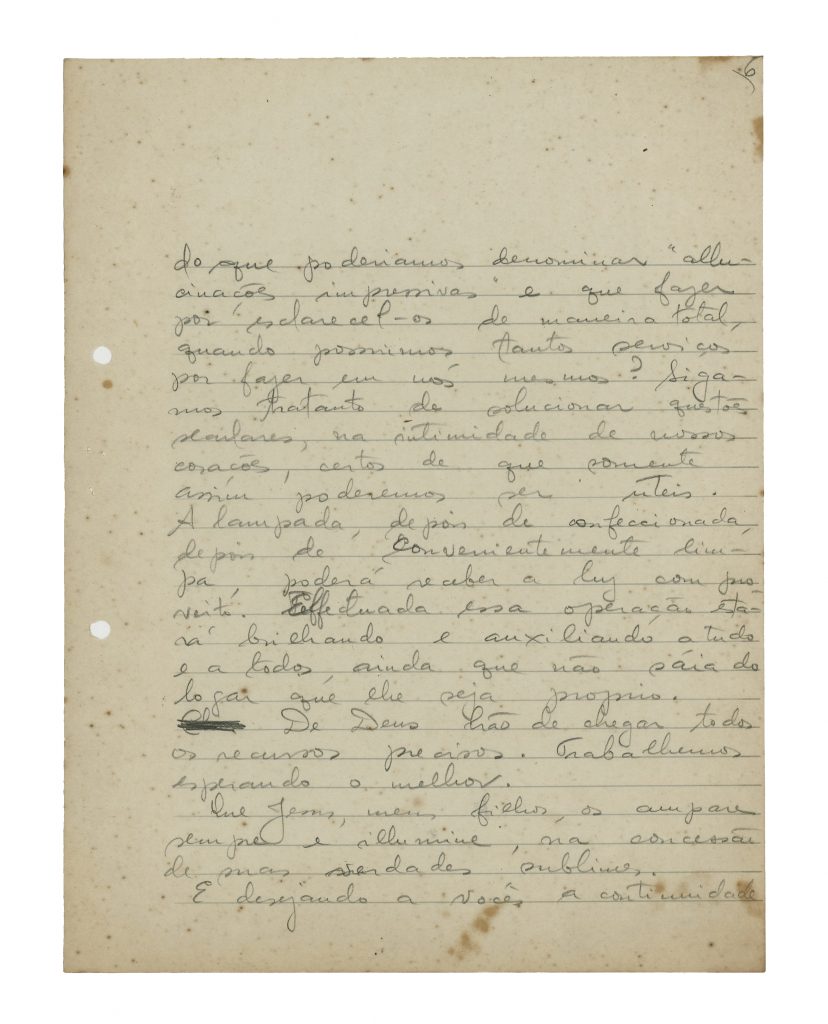 6
do que poderiamos denominar "allu-
cinações impressivas" e que fazer
por esclarecel-os de maneira total,
quando possuimos tantos serviços
por fazer em nós mesmos? Siga-
mos tratanto de solucionar questões
seculares, na intimidade de nossos
corações, certos de que somente
assim poderemos ser uteis.
A lampada, depois de confeccionada,
depois de convenientemente lim-
pa, poderá receber a luz com pro-
veito. Effectuada essa operação esta-
rá brilhando e auxiliando a tudo
e a todos ainda que não sáia do
logar que lhe seja proprio.
De Deus hão de chegar todos
os recursos precisos. Trabalhemos
esperando o melhor.
Que Jesus, meus filhos, os ampare
sempre e illumine, na concessão
de suas verdades sublimes.
E desejando a vocês a continuidade